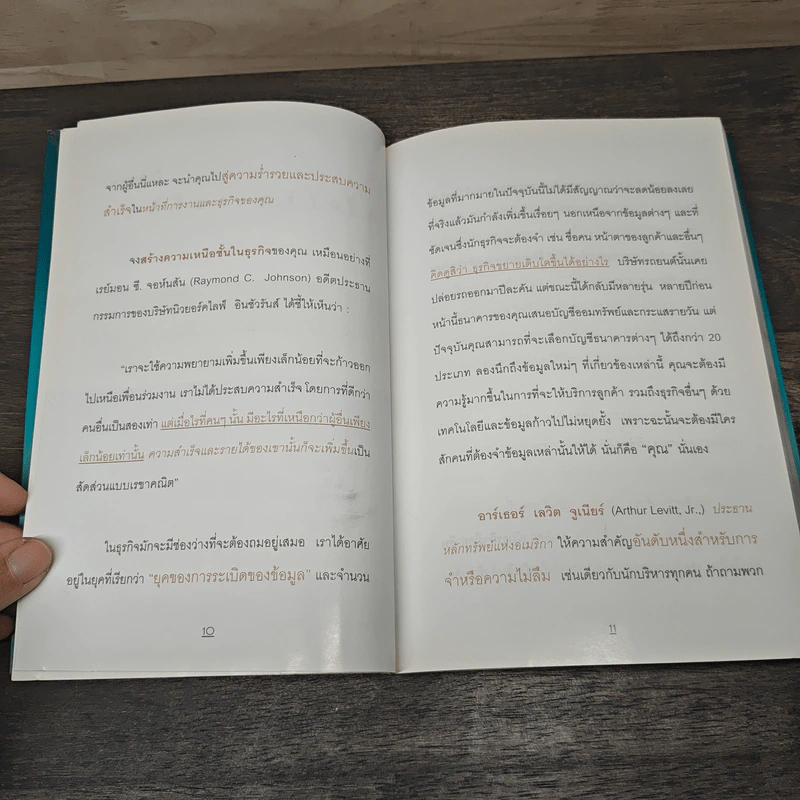 จากผู้อื่นนี่แหละ จะนำคุณไปสู่ความร่ำรวยและประสบความ
สำเร็จในหน้าที่การงานและธุรกิจของคุณ
จงสร้างความเหนือชั้นในธุรกิจของคุณ เหมือนอย่างที่
เรย์มอน ซี. จอห์นสัน (Raymond C. Johnson) อดีตประธาน
กรรมการของบริษัทนิวยอร์คไลฟ์ อินชัวรันส์ ได้ชี้ให้เห็นว่า :
“เราจะใช้ความพยายามเพิ่มขึ้นเพียงเล็กน้อยที่จะก้าวออก
ไปเหนือเพื่อนร่วมงาน เราไม่ได้ประสบความสำเร็จ โดยการที่ดีกว่า
คนอื่นเป็นสองเท่า แต่เมื่อไรที่คนๆ นั้น มีอะไรที่เหนือกว่าผู้อื่นเพียง
เล็กน้อยเท่านั้น ความสำเร็จและรายได้ของเขานั้นก็จะเพิ่มขึ้นเป็น
สัดส่วนแบบเรขาคณิต”
ในธุรกิจมักจะมีช่องว่างที่จะต้องถมอยู่เสมอ เราได้อาศัย
อยู่ในยุคที่เรียกว่า “ยุคของการระเบิดของข้อมูล” และจำนวน
10
ข้อมูลที่มากมายในปัจจุบันนี้ไม่ได้มีสัญญาณว่าจะลดน้อยลงเลย
ที่จริงแล้วมันกำลังเพิ่มขึ้นเรื่อยๆ นอกเหนือจากข้อมูลต่างๆ และที่
ชัดเจนซึ่งนักธุรกิจจะต้องจำ เช่น ชื่อคน หน้าตาของลูกค้าและอื่นๆ
คิดดูสิว่า ธุรกิจขยายเติบโตขึ้นได้อย่างไร บริษัทรถยนต์นั้นเคย
ปล่อยรถออกมาปีละคัน แต่ขณะนี้ได้กลับมีหลายรุ่น หลายปีก่อน
หน้านี้ธนาคารของคุณเสนอบัญชีออมทรัพย์และกระแสรายวัน แต่
ปัจจุบันคุณสามารถที่จะเลือกบัญชีธนาคารต่างๆ ได้ถึงกว่า 20
ประเภท ลองนึกถึงข้อมูลใหม่ๆ ที่เกี่ยวข้องเหล่านี้ คุณจะต้องมี
ความรู้มากขึ้นในการที่จะให้บริการลูกค้า รวมถึงธุรกิจอื่นๆ ด้วย
เทคโนโลยีและข้อมูลก้าวไปไม่หยุดยั้ง เพราะฉะนั้นจะต้องมีใคร
สักคนที่ต้องจำข้อมูลเหล่านั้นให้ได้ นั่นก็คือ “คุณ” นั่นเอง
อาร์เธอร์ เลวิต จูเนียร์ (Arthur Levitt, Jr.,) ประธาน
หลักทรัพย์แห่งอเมริกา ให้ความสำคัญอันดับหนึ่งสำหรับการ
จำหรือความไม่ลืม เช่นเดียวกับนักบริหารทุกคน ถ้าถามพวก
11